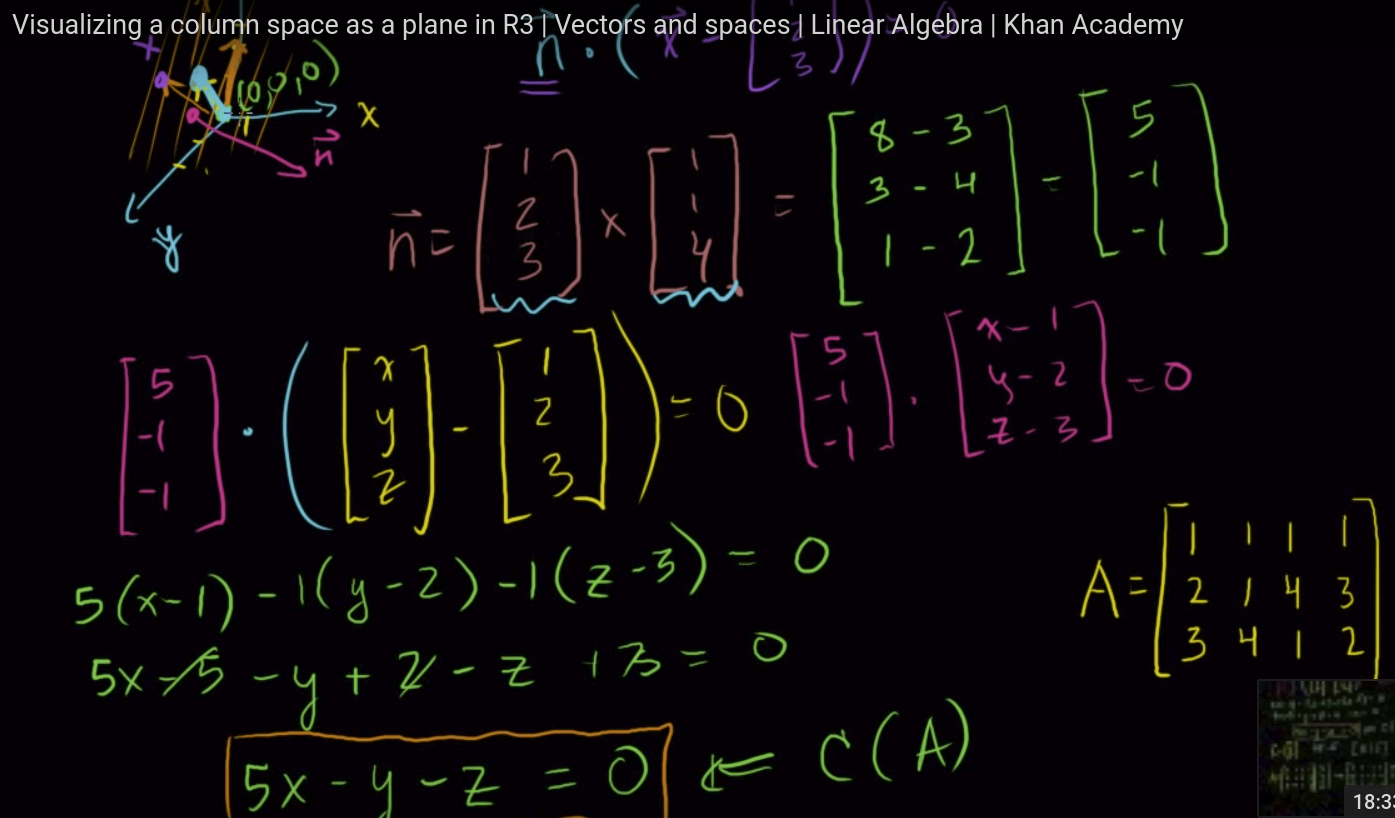 Visualizing a column space as a plane in R3 | Vectors and spaces | Linear Algebra | Khan Academy
n⃗ · ( x⃗ - [ 3 ] )
(0,0,0)
x
n⃗
y
n⃗ = [1 2 3] × [1 1 4] = [8-3 3-4 1-2] = [5 -1 -1]
[5 -1 -1] · ( [x y z] - [1 2 3] ) = 0
[5 -1 -1] · [x-1 y-2 z-3] = 0
5(x-1) -1(y-2) -1(z-3) = 0
A = [1 1 1 1
2 1 4 3
3 4 1 2]
5x-5 -y+2 -z +3 = 0
5x - y - z = 0 ⇐ C(A)